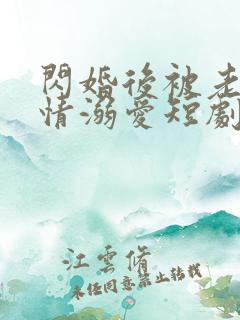 閃婚後被老
情溺愛短劇
江雲脩
未經同意禁止转载